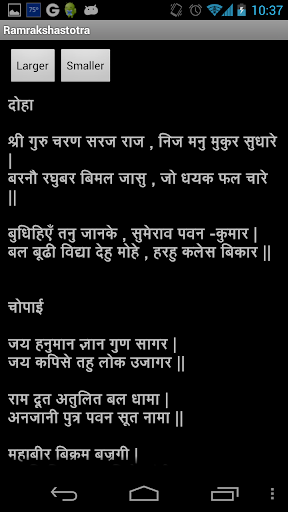 75°
10:37
Ramrakshastotra
Larger
Smaller
दोहा
श्री गुरु चरण सरज राज , निज मनु मुकुर सुधारे
|
बरनौ रघुबर बिमल जासु , जो धयक फल चारे
||
बुधिहिएँ तनु जानके , सुमेराव पवन -कुमार |
बल बूढी विद्या देहु मोहे , हरहु कलेस बिकार ||
चोपाई
जय हनुमान ज्ञान गुण सागर |
जय कपिसे तहु लोक उजागर |
राम दूत अतुलित बल धामा |
अनजानी पुत्र पवन सूत नामा ||
महाबीर बिक्रम बज्रगी |